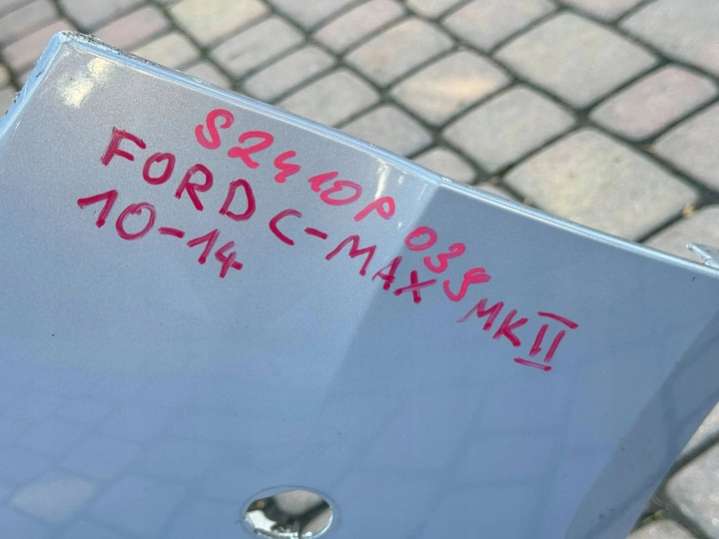 S2410P039
FORD C-MAX MKII
10-14